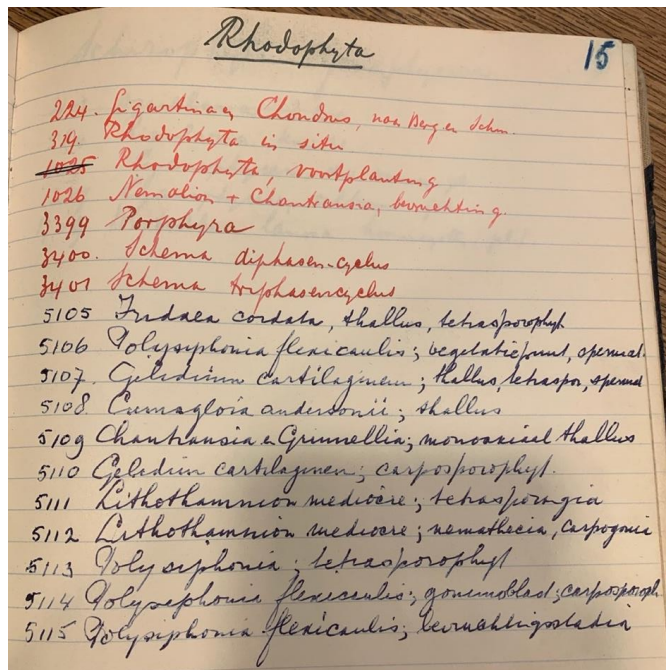 Rhodophyta
15
224. Gigartina en Chondrus, naar Berg en Schm.
319. Rhodophyta in situ
1025 Rhodophyta, voortplanting
1026 Nemalion + Chantransia, bevruchting.
3399 Porphyra
3400. Schema diphasen-cyclus
3401 Schema triphasencyclus
5105 Iridaea cordata, thallus, tetrasporophyt
5106 Polysiphonia flexicaulis; vegetatiepunt, spermat.
5107. Gelidium cartilagineum; thallus, tetraspor, spermat
5108. Cumagloia andersonii; thallus
5109 Chantransia en Grinnellia; monoaxiaal thallus
5110 Gelidium cartilagineu; carposporophyt.
5111 Lithothamnion mediocre; tetrasporangia
5112 Lithothamnion mediocre; nemathecia, carpogonia
5113 Polysiphonia; tetrasporophyt
5114 Polysiphonia flexicaulis; gonimoblast; carposporoph.
5115 Polysiphonia flexicaulis; bevruchtingsstadia